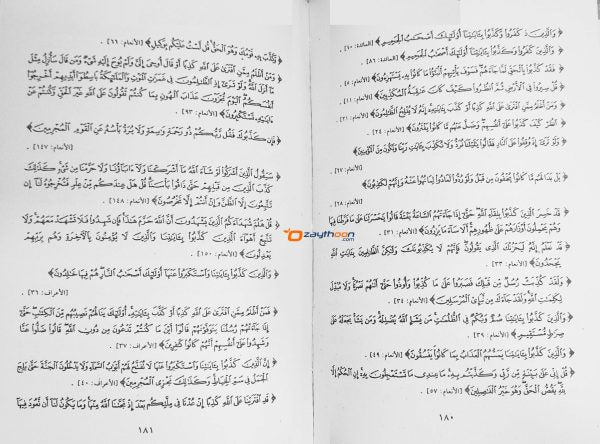 ﴿ وَالَّذِينَ كَفَرُوا وَكَذَّبُوا بِآيَاتِنَا أُولَئِكَ أَصْحَابُ الْجَحِيمِ ﴾ [المائدة: ١٠].
﴿ وَالَّذِينَ كَفَرُوا وَكَذَّبُوا بِآيَاتِنَا أُولَئِكَ أَصْحَابُ الْجَحِيمِ ﴾ [المائدة: ٨٦].
﴿ فَقَدْ كَذَّبُوا بِالْحَقِّ لَمَّا جَاءَهُمْ فَسَوْفَ يَأْتِيهِمْ أَنْبَاءُ مَا كَانُوا بِهِ يَسْتَهْزِءُونَ ﴾ [الأنعام: ٥].
﴿ قُلْ سِيرُوا فِي الْأَرْضِ ثُمَّ انْظُرُوا كَيْفَ كَانَ عَاقِبَةُ الْمُكَذِّبِينَ ﴾ [الأنعام: ١١].
﴿ وَمَنْ أَظْلَمُ مِمَّنِ افْتَرَى عَلَى اللَّهِ كَذِبًا أَوْ كَذَّبَ بِآيَاتِهِ إِنَّهُ لَا يُفْلِحُ الظَّالِمُونَ ﴾ [الأنعام: ٢١].
﴿ انْظُرْ كَيْفَ كَذَبُوا عَلَى أَنْفُسِهِمْ وَضَلَّ عَنْهُمْ مَا كَانُوا يَفْتَرُونَ ﴾ [الأنعام: ٢٤].
﴿ وَلَوْ تَرَى إِذْ وُقِفُوا عَلَى النَّارِ فَقَالُوا يَا لَيْتَنَا نُرَدُّ وَلَا نُكَذِّبَ بِآيَاتِ رَبِّنَا وَنَكُونَ مِنَ الْمُؤْمِنِينَ ﴾
[الأنعام: ٢٧].
﴿ بَلْ بَدَا لَهُمْ مَا كَانُوا يُخْفُونَ مِنْ قَبْلُ وَلَوْ رُدُّوا لَعَادُوا لِمَا نُهُوا عَنْهُ وَإِنَّهُمْ لَكَاذِبُونَ ﴾
[الأنعام: ٢٨].
﴿ قَدْ خَسِرَ الَّذِينَ كَذَّبُوا بِلِقَاءِ اللَّهِ حَتَّى إِذَا جَاءَتْهُمُ السَّاعَةُ بَغْتَةً قَالُوا يَا حَسْرَتَنَا عَلَى مَا فَرَّطْنَا فِيهَا
وَهُمْ يَحْمِلُونَ أَوْزَارَهُمْ عَلَى ظُهُورِهِمْ أَلَا سَاءَ مَا يَزِرُونَ ﴾ [الأنعام: ٣١].
﴿ قَدْ نَعْلَمُ إِنَّهُ لَيَحْزُنُكَ الَّذِي يَقُولُونَ فَإِنَّهُمْ لَا يُكَذِّبُونَكَ وَلَكِنَّ الظَّالِمِينَ بِآيَاتِ اللَّهِ
يَجْحَدُونَ ﴾ [الأنعام: ٣٣].
﴿ وَلَقَدْ كُذِّبَتْ رُسُلٌ مِنْ قَبْلِكَ فَصَبَرُوا عَلَى مَا كُذِّبُوا وَأُوذُوا حَتَّى أَتَاهُمْ نَصْرُنَا وَلَا مُبَدِّلَ
لِكَلِمَاتِ اللَّهِ وَلَقَدْ جَاءَكَ مِنْ نَبَإِ الْمُرْسَلِينَ ﴾ [الأنعام: ٣٤].
﴿ وَالَّذِينَ كَذَّبُوا بِآيَاتِنَا صُمٌّ وَبُكْمٌ فِي الظُّلُمَاتِ مَنْ يَشَإِ اللَّهُ يُضْلِلْهُ وَمَنْ يَشَأْ يَجْعَلْهُ عَلَى
صِرَاطٍ مُسْتَقِيمٍ ﴾ [الأنعام: ٣٩].
﴿ وَالَّذِينَ كَذَّبُوا بِآيَاتِنَا يَمَسُّهُمُ الْعَذَابُ بِمَا كَانُوا يَفْسُقُونَ ﴾ [الأنعام: ٤٩].
﴿ قُلْ إِنِّي عَلَى بَيِّنَةٍ مِنْ رَبِّي وَكَذَّبْتُمْ بِهِ مَا عِنْدِي مَا تَسْتَعْجِلُونَ بِهِ إِنِ الْحُكْمُ إِلَّا
لِلَّهِ يَقُصُّ الْحَقَّ وَهُوَ خَيْرُ الْفَاصِلِينَ ﴾ [الأنعام: ٥٧].
١٨٠
﴿ وَكَذَّبَ بِهِ قَوْمُكَ وَهُوَ الْحَقُّ قُلْ لَسْتُ عَلَيْكُمْ بِوَكِيلٍ ﴾ [الأنعام: ٦٦].
﴿ وَمَنْ أَظْلَمُ مِمَّنِ افْتَرَى عَلَى اللَّهِ كَذِبًا أَوْ قَالَ أُوحِيَ إِلَيَّ وَلَمْ يُوحَ إِلَيْهِ شَيْءٌ وَمَنْ قَالَ سَأُنْزِلُ مِثْلَ
مَا أَنْزَلَ اللَّهُ وَلَوْ تَرَى إِذِ الظَّالِمُونَ فِي غَمَرَاتِ الْمَوْتِ وَالْمَلَائِكَةُ بَاسِطُو أَيْدِيهِمْ أَخْرِجُوا
أَنْفُسَكُمُ الْيَوْمَ تُجْزَوْنَ عَذَابَ الْهُونِ بِمَا كُنْتُمْ تَقُولُونَ عَلَى اللَّهِ غَيْرَ الْحَقِّ وَكُنْتُمْ عَنْ
آيَاتِهِ تَسْتَكْبِرُونَ ﴾ [الأنعام: ٩٣].
﴿ فَإِنْ كَذَّبُوكَ فَقُلْ رَبُّكُمْ ذُو رَحْمَةٍ وَاسِعَةٍ وَلَا يُرَدُّ بَأْسُهُ عَنِ الْقَوْمِ الْمُجْرِمِينَ ﴾
[الأنعام: ١٤٧].
﴿ سَيَقُولُ الَّذِينَ أَشْرَكُوا لَوْ شَاءَ اللَّهُ مَا أَشْرَكْنَا وَلَا آبَاؤُنَا وَلَا حَرَّمْنَا مِنْ شَيْءٍ كَذَلِكَ
كَذَّبَ الَّذِينَ مِنْ قَبْلِهِمْ حَتَّى ذَاقُوا بَأْسَنَا قُلْ هَلْ عِنْدَكُمْ مِنْ عِلْمٍ فَتُخْرِجُوهُ لَنَا إِنْ
تَتَّبِعُونَ إِلَّا الظَّنَّ وَإِنْ أَنْتُمْ إِلَّا تَخْرُصُونَ ﴾ [الأنعام: ١٤٨].
﴿ قُلْ هَلُمَّ شُهَدَاءَكُمُ الَّذِينَ يَشْهَدُونَ أَنَّ اللَّهَ حَرَّمَ هَذَا فَإِنْ شَهِدُوا فَلَا تَشْهَدْ مَعَهُمْ وَلَا
تَتَّبِعْ أَهْوَاءَ الَّذِينَ كَذَّبُوا بِآيَاتِنَا وَالَّذِينَ لَا يُؤْمِنُونَ بِالْآخِرَةِ وَهُمْ بِرَبِّهِمْ
يَعْدِلُونَ ﴾ [الأنعام: ١٥٠].
﴿ وَالَّذِينَ كَذَّبُوا بِآيَاتِنَا وَاسْتَكْبَرُوا عَنْهَا أُولَئِكَ أَصْحَابُ النَّارِ هُمْ فِيهَا خَالِدُونَ ﴾
[الأعراف: ٣٦].
﴿ فَمَنْ أَظْلَمُ مِمَّنِ افْتَرَى عَلَى اللَّهِ كَذِبًا أَوْ كَذَّبَ بِآيَاتِهِ أُولَئِكَ يَنَالُهُمْ نَصِيبُهُمْ مِنَ الْكِتَابِ حَتَّى
إِذَا جَاءَتْهُمْ رُسُلُنَا يَتَوَفَّوْنَهُمْ قَالُوا أَيْنَ مَا كُنْتُمْ تَدْعُونَ مِنْ دُونِ اللَّهِ قَالُوا ضَلُّوا عَنَّا
وَشَهِدُوا عَلَى أَنْفُسِهِمْ أَنَّهُمْ كَانُوا كَافِرِينَ ﴾ [الأعراف: ٣٧].
﴿ إِنَّ الَّذِينَ كَذَّبُوا بِآيَاتِنَا وَاسْتَكْبَرُوا عَنْهَا لَا تُفَتَّحُ لَهُمْ أَبْوَابُ السَّمَاءِ وَلَا يَدْخُلُونَ الْجَنَّةَ حَتَّى يَلِجَ
الْجَمَلُ فِي سَمِّ الْخِيَاطِ وَكَذَلِكَ نَجْزِي الْمُجْرِمِينَ ﴾ [الأعراف: ٤٠].
﴿ قَدِ افْتَرَيْنَا عَلَى اللَّهِ كَذِبًا إِنْ عُدْنَا فِي مِلَّتِكُمْ بَعْدَ إِذْ نَجَّانَا اللَّهُ مِنْهَا وَمَا يَكُونُ لَنَا أَنْ نَعُودَ فِيهَا
١٨١
zaythoon.com